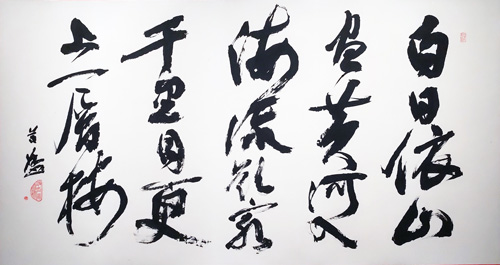 白日依山
尽黄河入
海流欲穷
千里目更
上一层楼